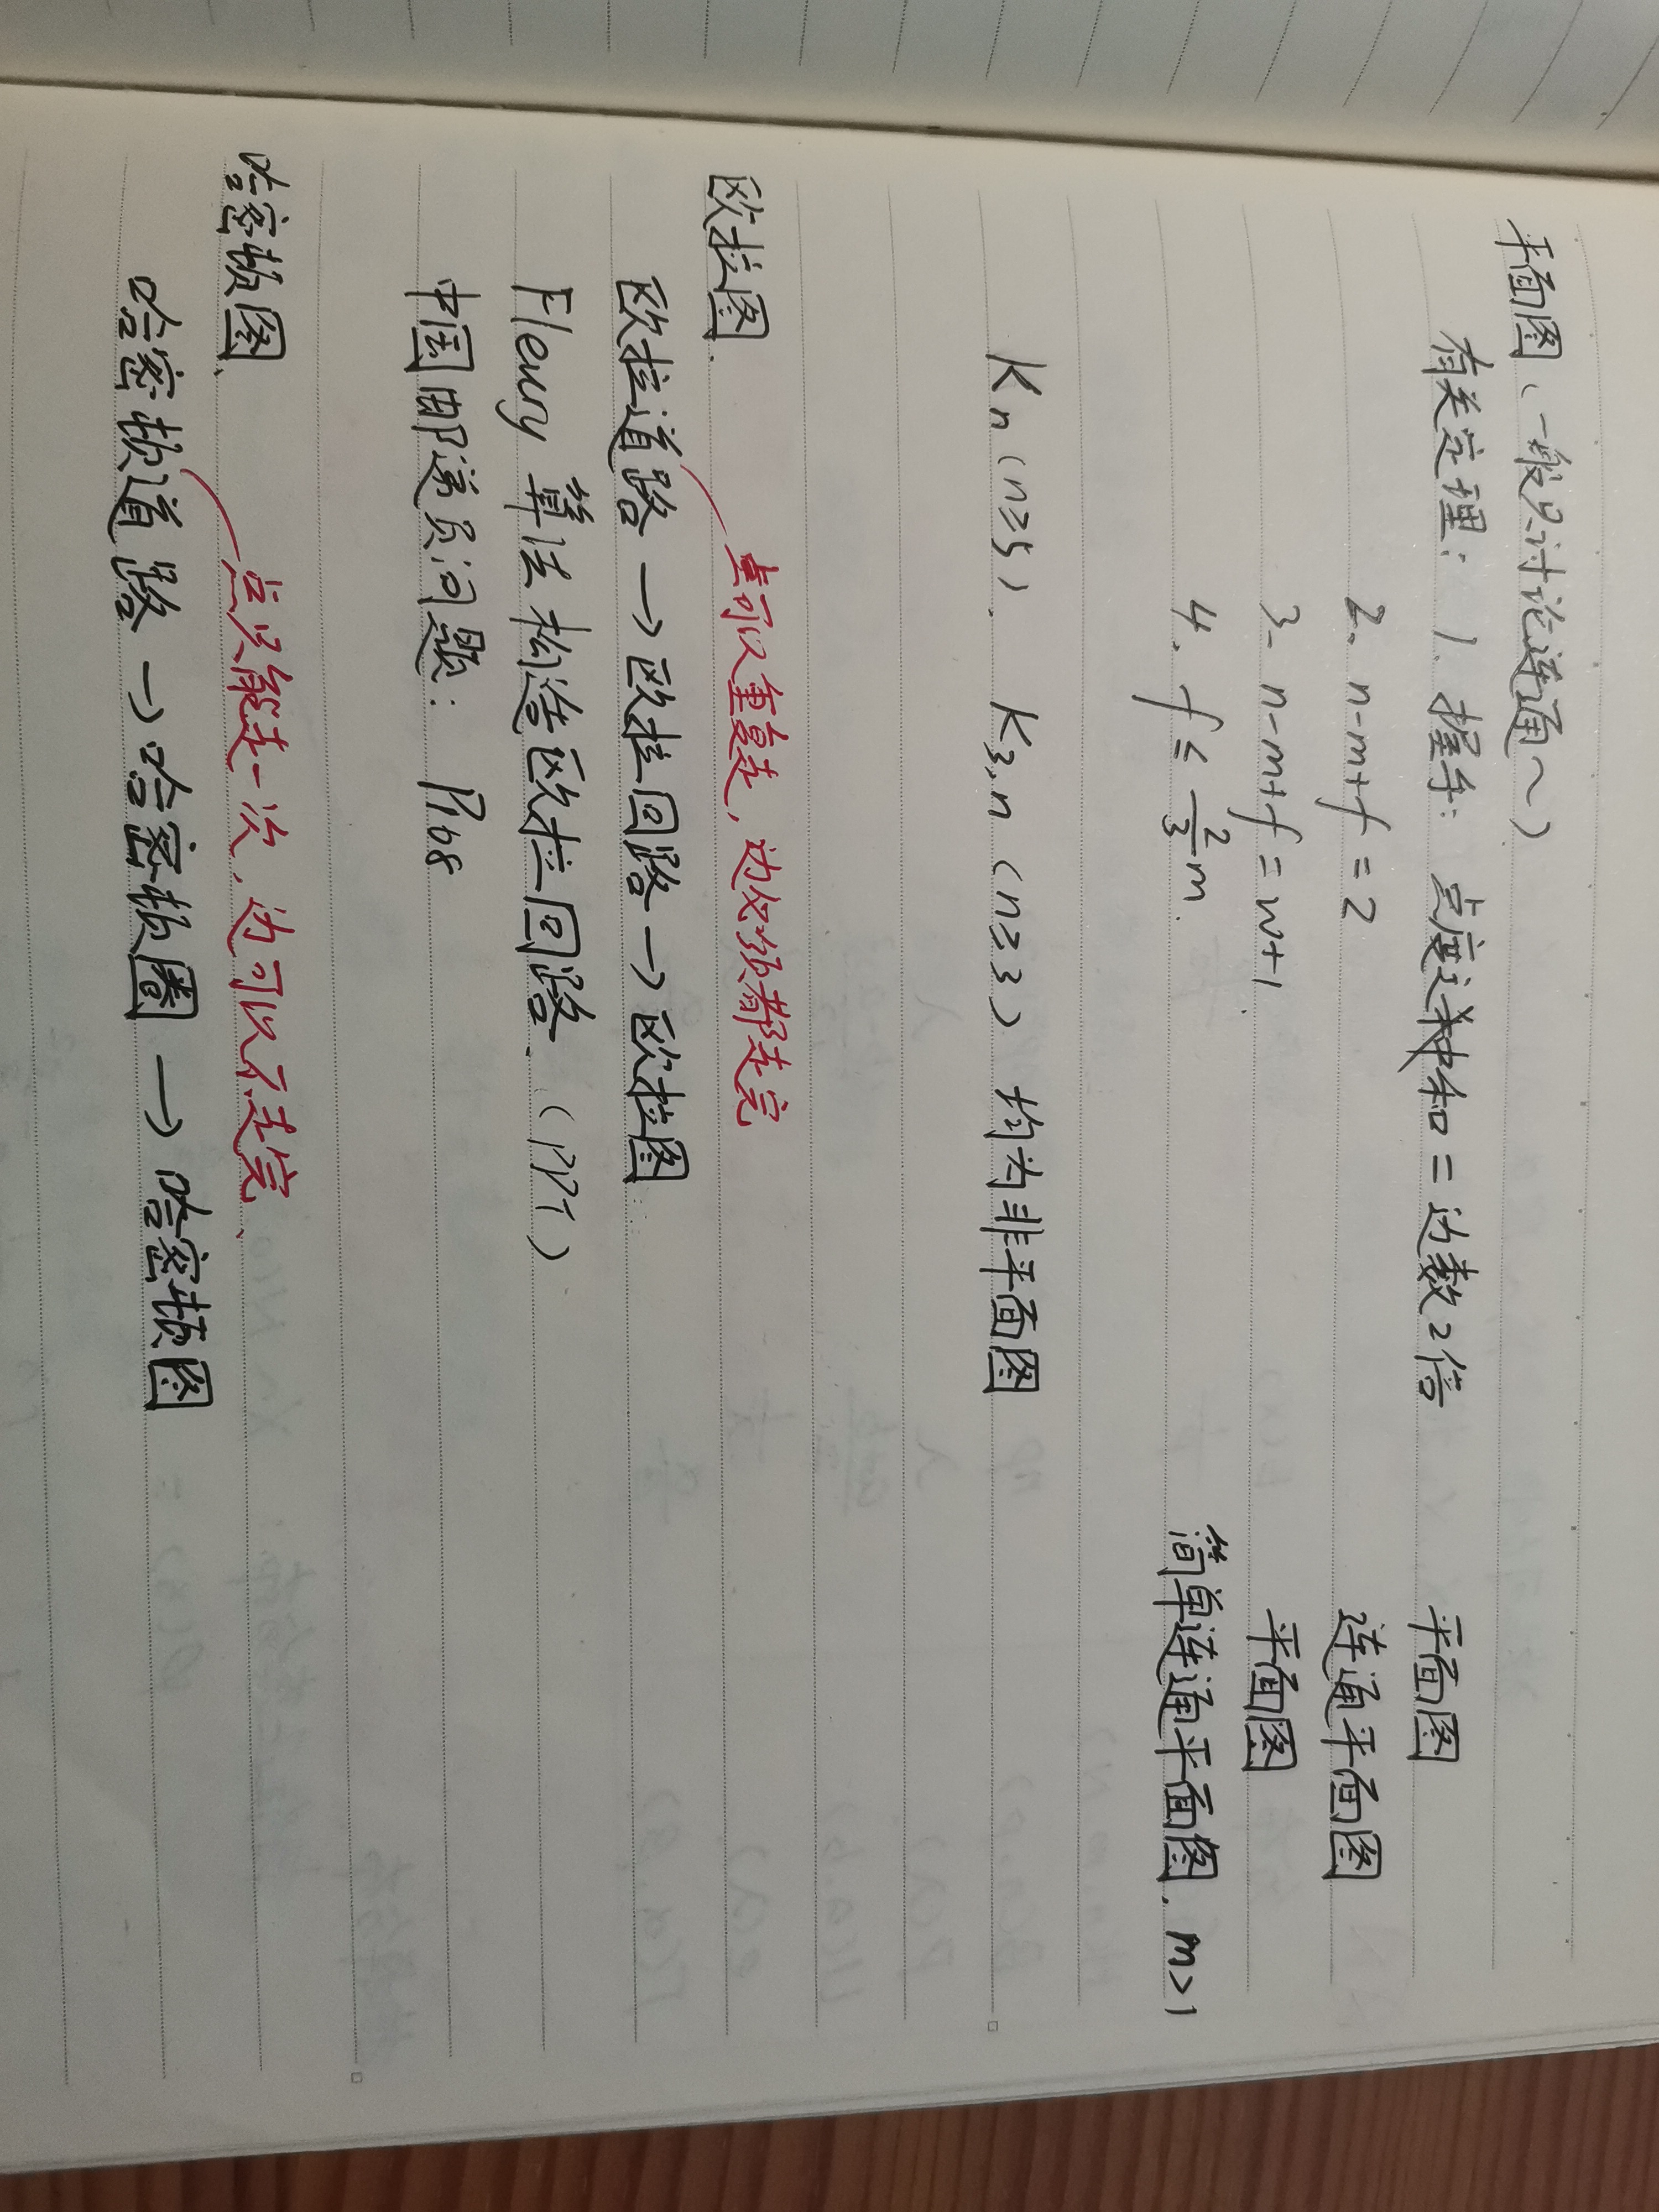 平面图（一般只讨论连通～）
有关定理： 1. 握手：点度之和＝边数2倍 平面图
2. n-m+f=2 连通平面图
3. n-m+f=w+1. 平面图
4. f≤2/3m. 简单连通平面图. m>1
Kn（n≥5）. K3,n（n≥3） 均为非平面图
点可以重复走，边必须都走完
欧拉图.
欧拉道路→欧拉回路→欧拉图
Fleury 算法构造欧拉回路.（PPT）
中国邮递员问题： P168
点只能走一次，边可以不走完、
哈密顿图、
哈密顿道路→哈密顿圈→哈密顿图